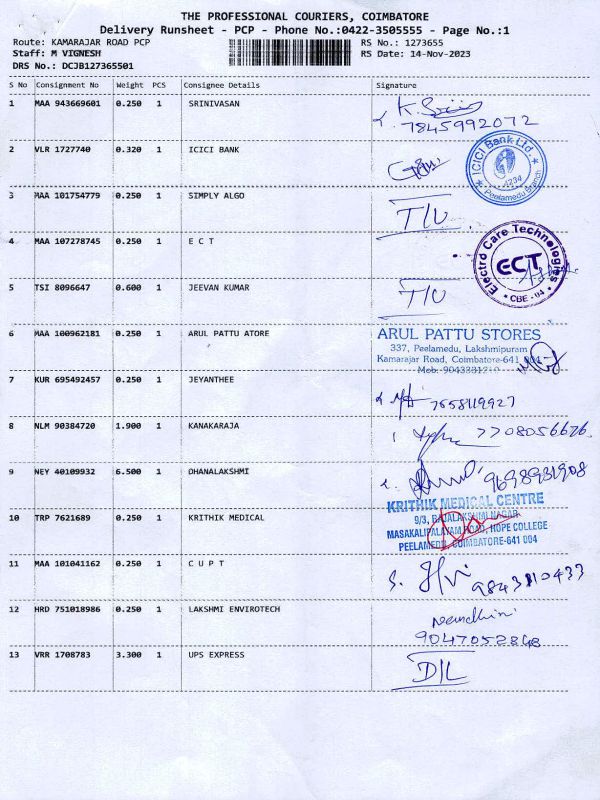 THE PROFESSIONAL COURIERS, COIMBATORE
Delivery Runsheet - PCP - Phone No.:0422-3505555 - Page No.:1
Route: KAMARAJAR ROAD PCP RS No.: 1273655
Staff: M VIGNESH RS Date: 14-Nov-2023
DRS No.: DCJB127365501
S No Consignment No Weight PCS Consignee Details Signature
1 MAA 943669601 0.250 1 SRINIVASAN
7845992072
2 VLR 1727740 0.320 1 ICICI BANK
ICICI Bank Ltd. Peelamedu Branch
3 MAA 101754779 0.250 1 SIMPLY ALGO T/U
4 MAA 107278745 0.250 1 E C T
Electrd Care Technologies ECT CBE - 04
5 TSI 8096647 0.600 1 JEEVAN KUMAR T/U
6 MAA 100962181 0.250 1 ARUL PATTU ATORE
ARUL PATTU STORES
337, Peelamedu, Lakshmipuram
Kamarajar Road, Coimbatore-641 004
Mob: 9043331210
7 KUR 695492457 0.250 1 JEYANTHEE
8 NLM 90384720 1.900 1 KANAKARAJA 7708056676
9 NEY 40109932 6.500 1 DHANALAKSHMI 9698931908
10 TRP 7621689 0.250 1 KRITHIK MEDICAL
KRITHIK MEDICAL CENTRE
9/3, RAJALAKSHMI NAGAR
MASAKALIPALAYAM ROAD, HOPE COLLEGE
PEELAMEDU, COIMBATORE-641 004
11 MAA 101041162 0.250 1 C U P T
12 HRD 751018986 0.250 1 LAKSHMI ENVIROTECH
Nandhini
13 VRR 1708783 3.300 1 UPS EXPRESS D/L